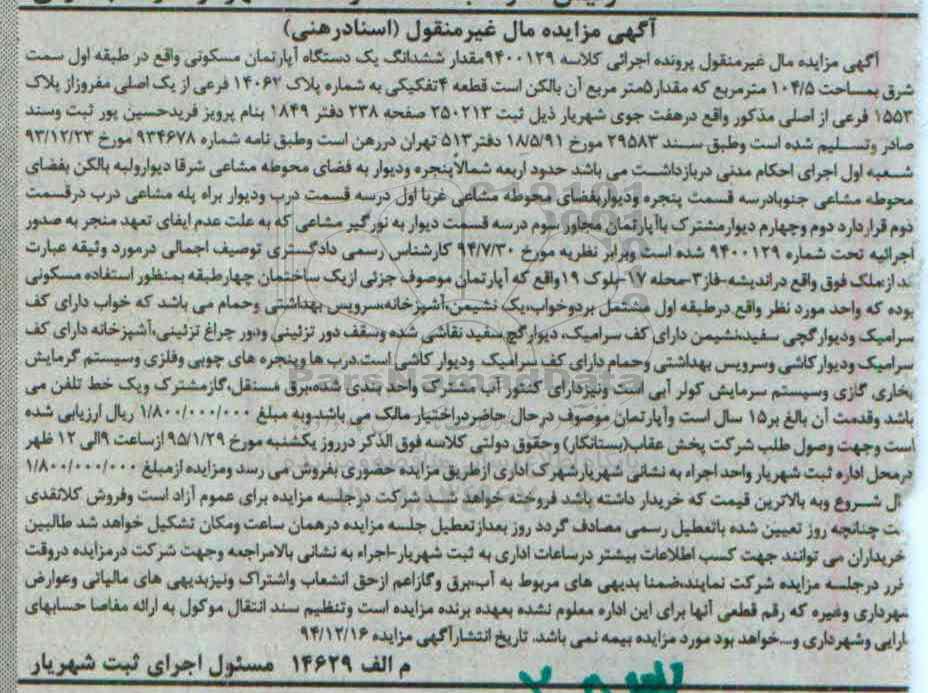 آگهی مزایده مال غیرمنقول (اسنادرهنی)
آگهی مزایده مال غیرمنقول پرونده اجرائی کلاسه ۹۴۰۰۱۲۹مقدار ششدانگ یک دستگاه آپارتمان مسکونی واقع در طبقه اول سمت
شرق بمساحت ۱۰۴/۵ مترمربع که مقدار۵متر مربع آن بالکن است قطعه ۴تفکیکی به شماره پلاک ۱۴۰۶۲ فرعی از یک اصلی مفروزاز پلاک
۱۵۵۳ فرعی از اصلی مذکور واقع درهفت جوی شهریار ذیل ثبت ۲۵۰۲۱۳ صفحه ۲۳۸ دفتر ۱۸۴۹ بنام پرویز فریدحسین پور ثبت وسند
صادر وتسلیم شده است وطبق سند ۲۹۵۸۳ مورخ ۱۸/۵/۹۱ دفتر۵۱۳ تهران دررهن است وطبق نامه شماره ۹۳۴۶۷۸ مورخ ۹۳/۱۲/۲۳
شعبه اول اجرای احکام مدنی دربازداشت می باشد حدود اربعه شمالاً پنجره ودیوار به فضای محوطه مشاعی شرقا دیواروليه بالکن بفضای
محوطه مشاعی جنوبادرسه قسمت پنجره ودیواربفضای محوطه مشاعی غربا اول درسه قسمت درب ودیوار براه پله مشاعی درب درقسمت
دوم قراردارد دوم وچهارم دیوارمشترک باآپارتمان مجاور سوم درسه قسمت دیوار به نورگیر مشاعی که به علت عدم ایفای تعهد منجر به صدور
اجرائیه تحت شماره ۹۴۰۰۱۲۹ شده است وبرابر نظریه مورخ ۹۴/۷/۳۰ کارشناس رسمی دادگستری توصیف اجمالی درمورد وثیقه عبارت
ند ازملک فوق واقع دراندیشه-فاز۳-محله ۱۷-بلوک ۱۹واقع که آپارتمان موصوف جزئی ازیک ساختمان چهارطبقه بمنظور استفاده مسکونی
بوده که واحد مورد نظر واقع درطبقه اول مشتمل بردوخواب،یک نشیمن،آشپزخانه،سرویس بهداشتی وحمام می باشد که خواب دارای کف
سرامیک ودیوارگچی سفید،نشیمن دارای کف سرامیک، دیوارگچ سفید نقاشی شده وسقف دور تزئینی ونور چراغ تزئینی،آشپزخانه دارای کف
سرامیک ودیوارکاشی وسرویس بهداشتی وحمام دارای کف سرامیک ودیوار کاشی است.درب ها وپنجره های چوبی وفلزی وسیستم گرمایش
بخاری گازی وسیستم سرمایش کولر آبی است ونیزدارای کنتور آب مشترک واحد بندی شده،برق مستقل،گازمشترک ویک خط تلفن می
باشد وقدمت آن بالغ بر۱۵ سال است وآپارتمان موصوف درحال حاضر دراختیار مالک می باشد.وبه مبلغ ۱/۸۰۰/۰۰۰/۰۰۰ ریال ارزیابی شده
است وجهت وصول طلب شرکت پخش عقاب(بستانکار) وحقوق دولتی کلاسه فوق الذکر درروز یکشنبه مورخ ۹۵/۱/۲۹ ازساعت ۹الی ۱۲ ظهر
درمحل اداره ثبت شهریار واحد اجراء به نشانی شهریارشهرک اداری ازطریق مزایده حضوری بفروش می رسد ومزایده ازمبلغ ۱/۸۰۰/۰۰۰/۰۰۰
ال شروع وبه بالاترین قیمت که خریدار داشته باشد فروخته خواهد شد شرکت درجلسه مزایده برای عموم آزاد است وفروش کلانقدی
ت چنانچه روز تعیین شده باتعطیل رسمی مصادف گردد روز بعدازتعطیل جلسه مزایده درهمان ساعت ومکان تشکیل خواهد شد طالبین
خریداران می توانند جهت کسب اطلاعات بیشتر درساعات اداری به ثبت شهریار-اجراء به نشانی بالامراجعه وجهت شرکت درمزایده دروقت
قرر درجلسه مزایده شرکت نمایند،ضمنا بدیهی های مربوط به آب،برق وگازاعم ازحق انشعاب واشتراک ونیزبدیهی های مالیاتی وعوارض
شهرداری وغیره که رقم قطعی آنها برای این اداره معلوم نشده بعهده برنده مزایده است وتنظیم سند انتقال موکول به ارائه مفاصا حسابهای
دارایی وشهرداری و...خواهد بود مورد مزایده بیمه نمی باشد. تاریخ انتشارآگهی مزایده ۹۴/۱۲/۱۶
م الف ۱۴۶۲۹ مسئول اجرای ثبت شهریار
ParsNamadData